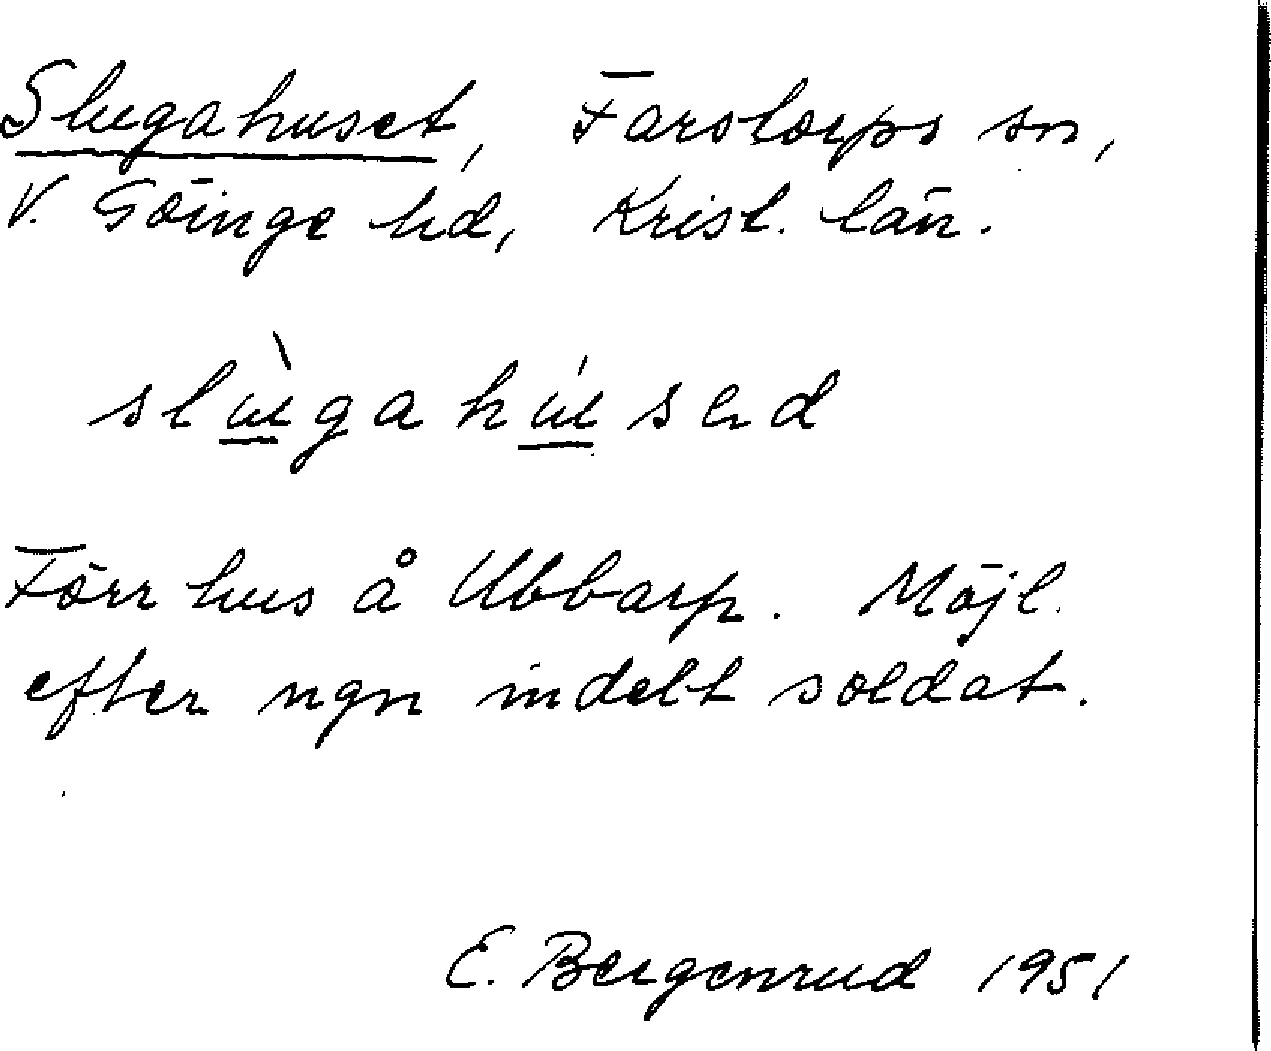 Slugahuset, Farstorps sn,
V. Göinge hd, Krist. län.
slùgahúsəd
Förr hus å Ubbarp. Möjl.
efter ngn indelt soldat.
E. Bergenrud 1951